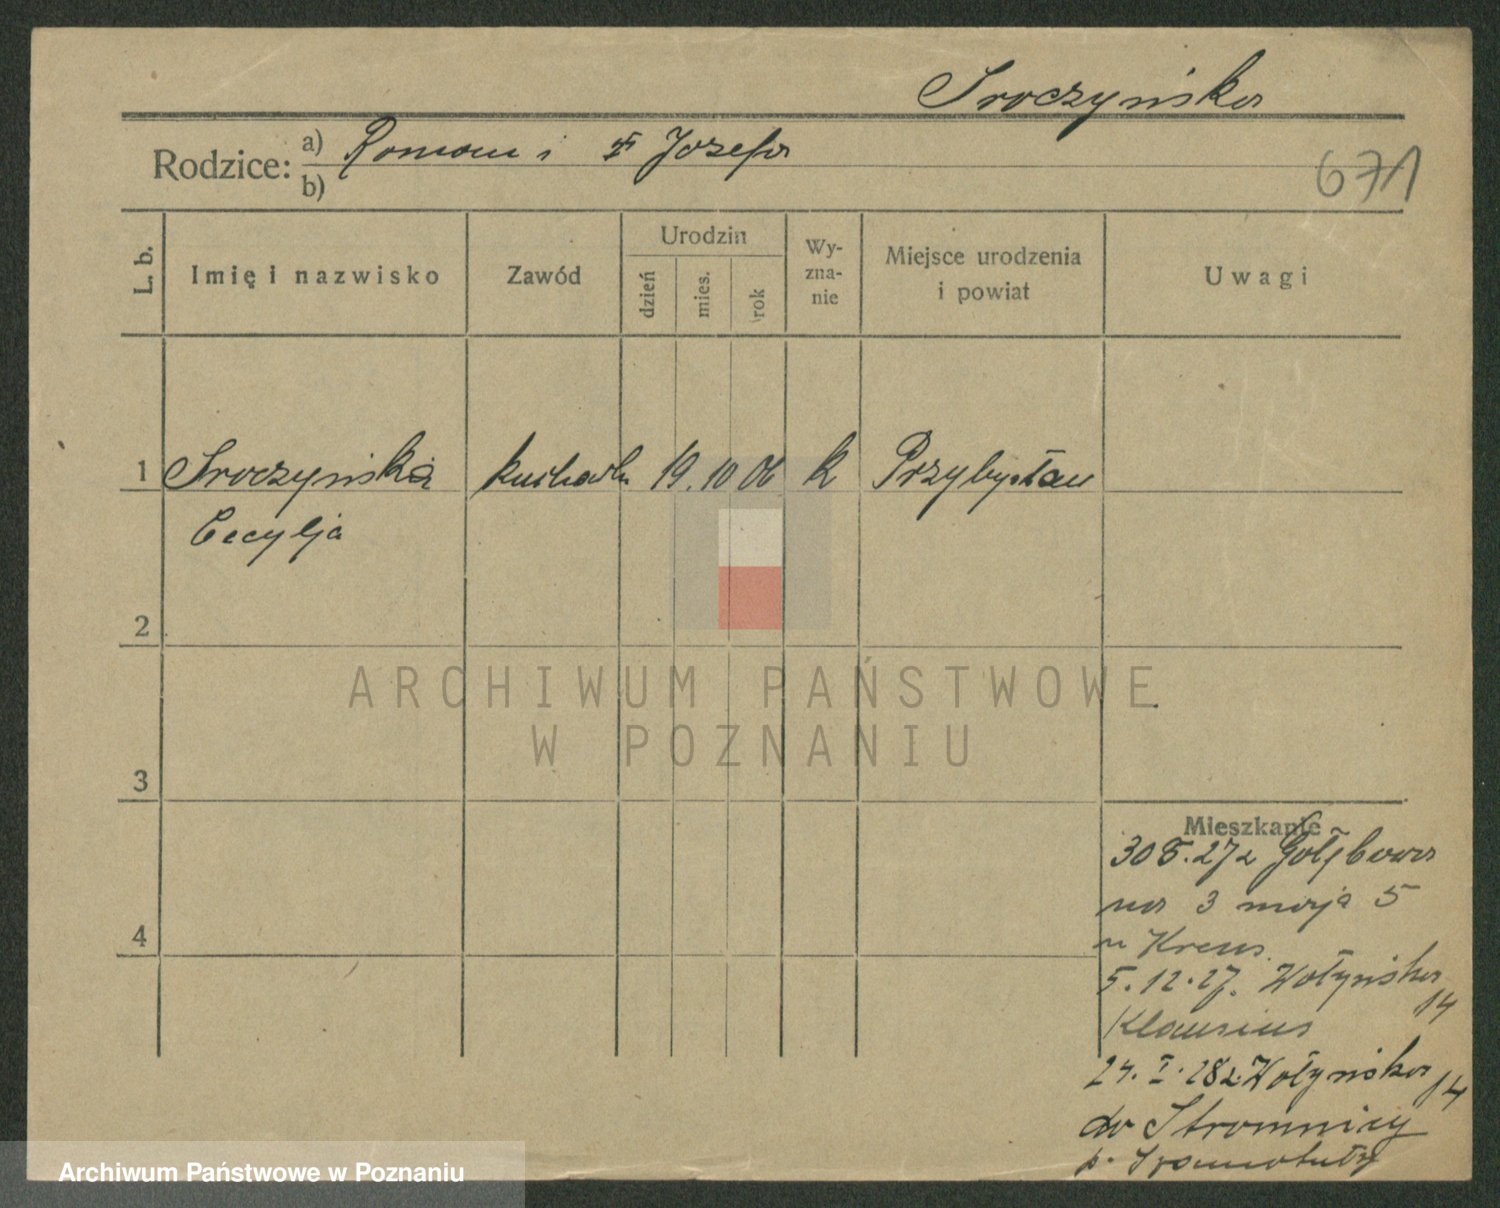 Sroczyńska
Rodzice: a) Roman i Józefa
b)
671
L. b. Imię i nazwisko Zawód Urodzin dzień mies. rok Wy-zna-nie Miejsce urodzenia i powiat Uwagi
1 Sroczyńska kucharka 19. 10 06 k Przybysław
Cecylja
2
ARCHIWUM PAŃSTWOWE
W POZNANIU
3
Mieszkanie
30 5. 27 z Gołębowa
na 3 maja 5
4
u Kreus.
5. 12. 27. Wołyńska 14
Klausius
24. I. 28 z Wołyńska 14
do
p. Szamotuły
Archiwum Państwowe w Poznaniu